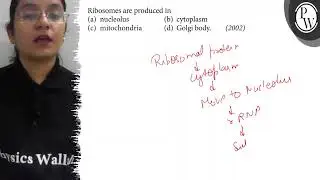 Ribosomes are produced in
(a) nucleolus (b) cytoplasm
(c) mitochondria (d) Golgi body. (2002)
PW
Ribosomal protein
cytoplasm
Move to Nucleolus
RNP
Su
hysics Walla